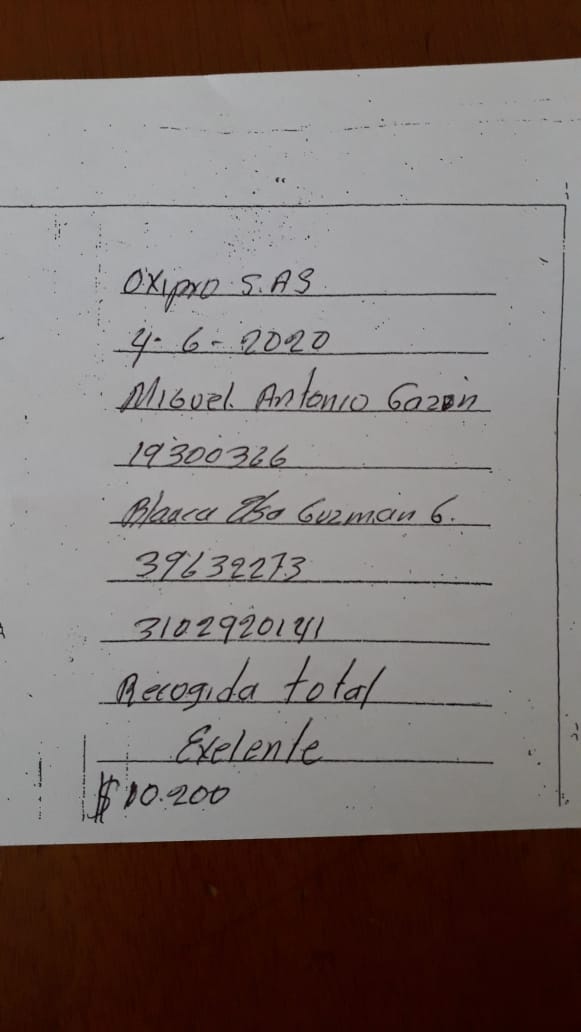 Oxipro S.AS
4-6-2020
Miguel Antonio Gazón
19300326
Blanca Elsa Guzmán G.
39632273
3102920141
Recogida total
Exelente
$10.200